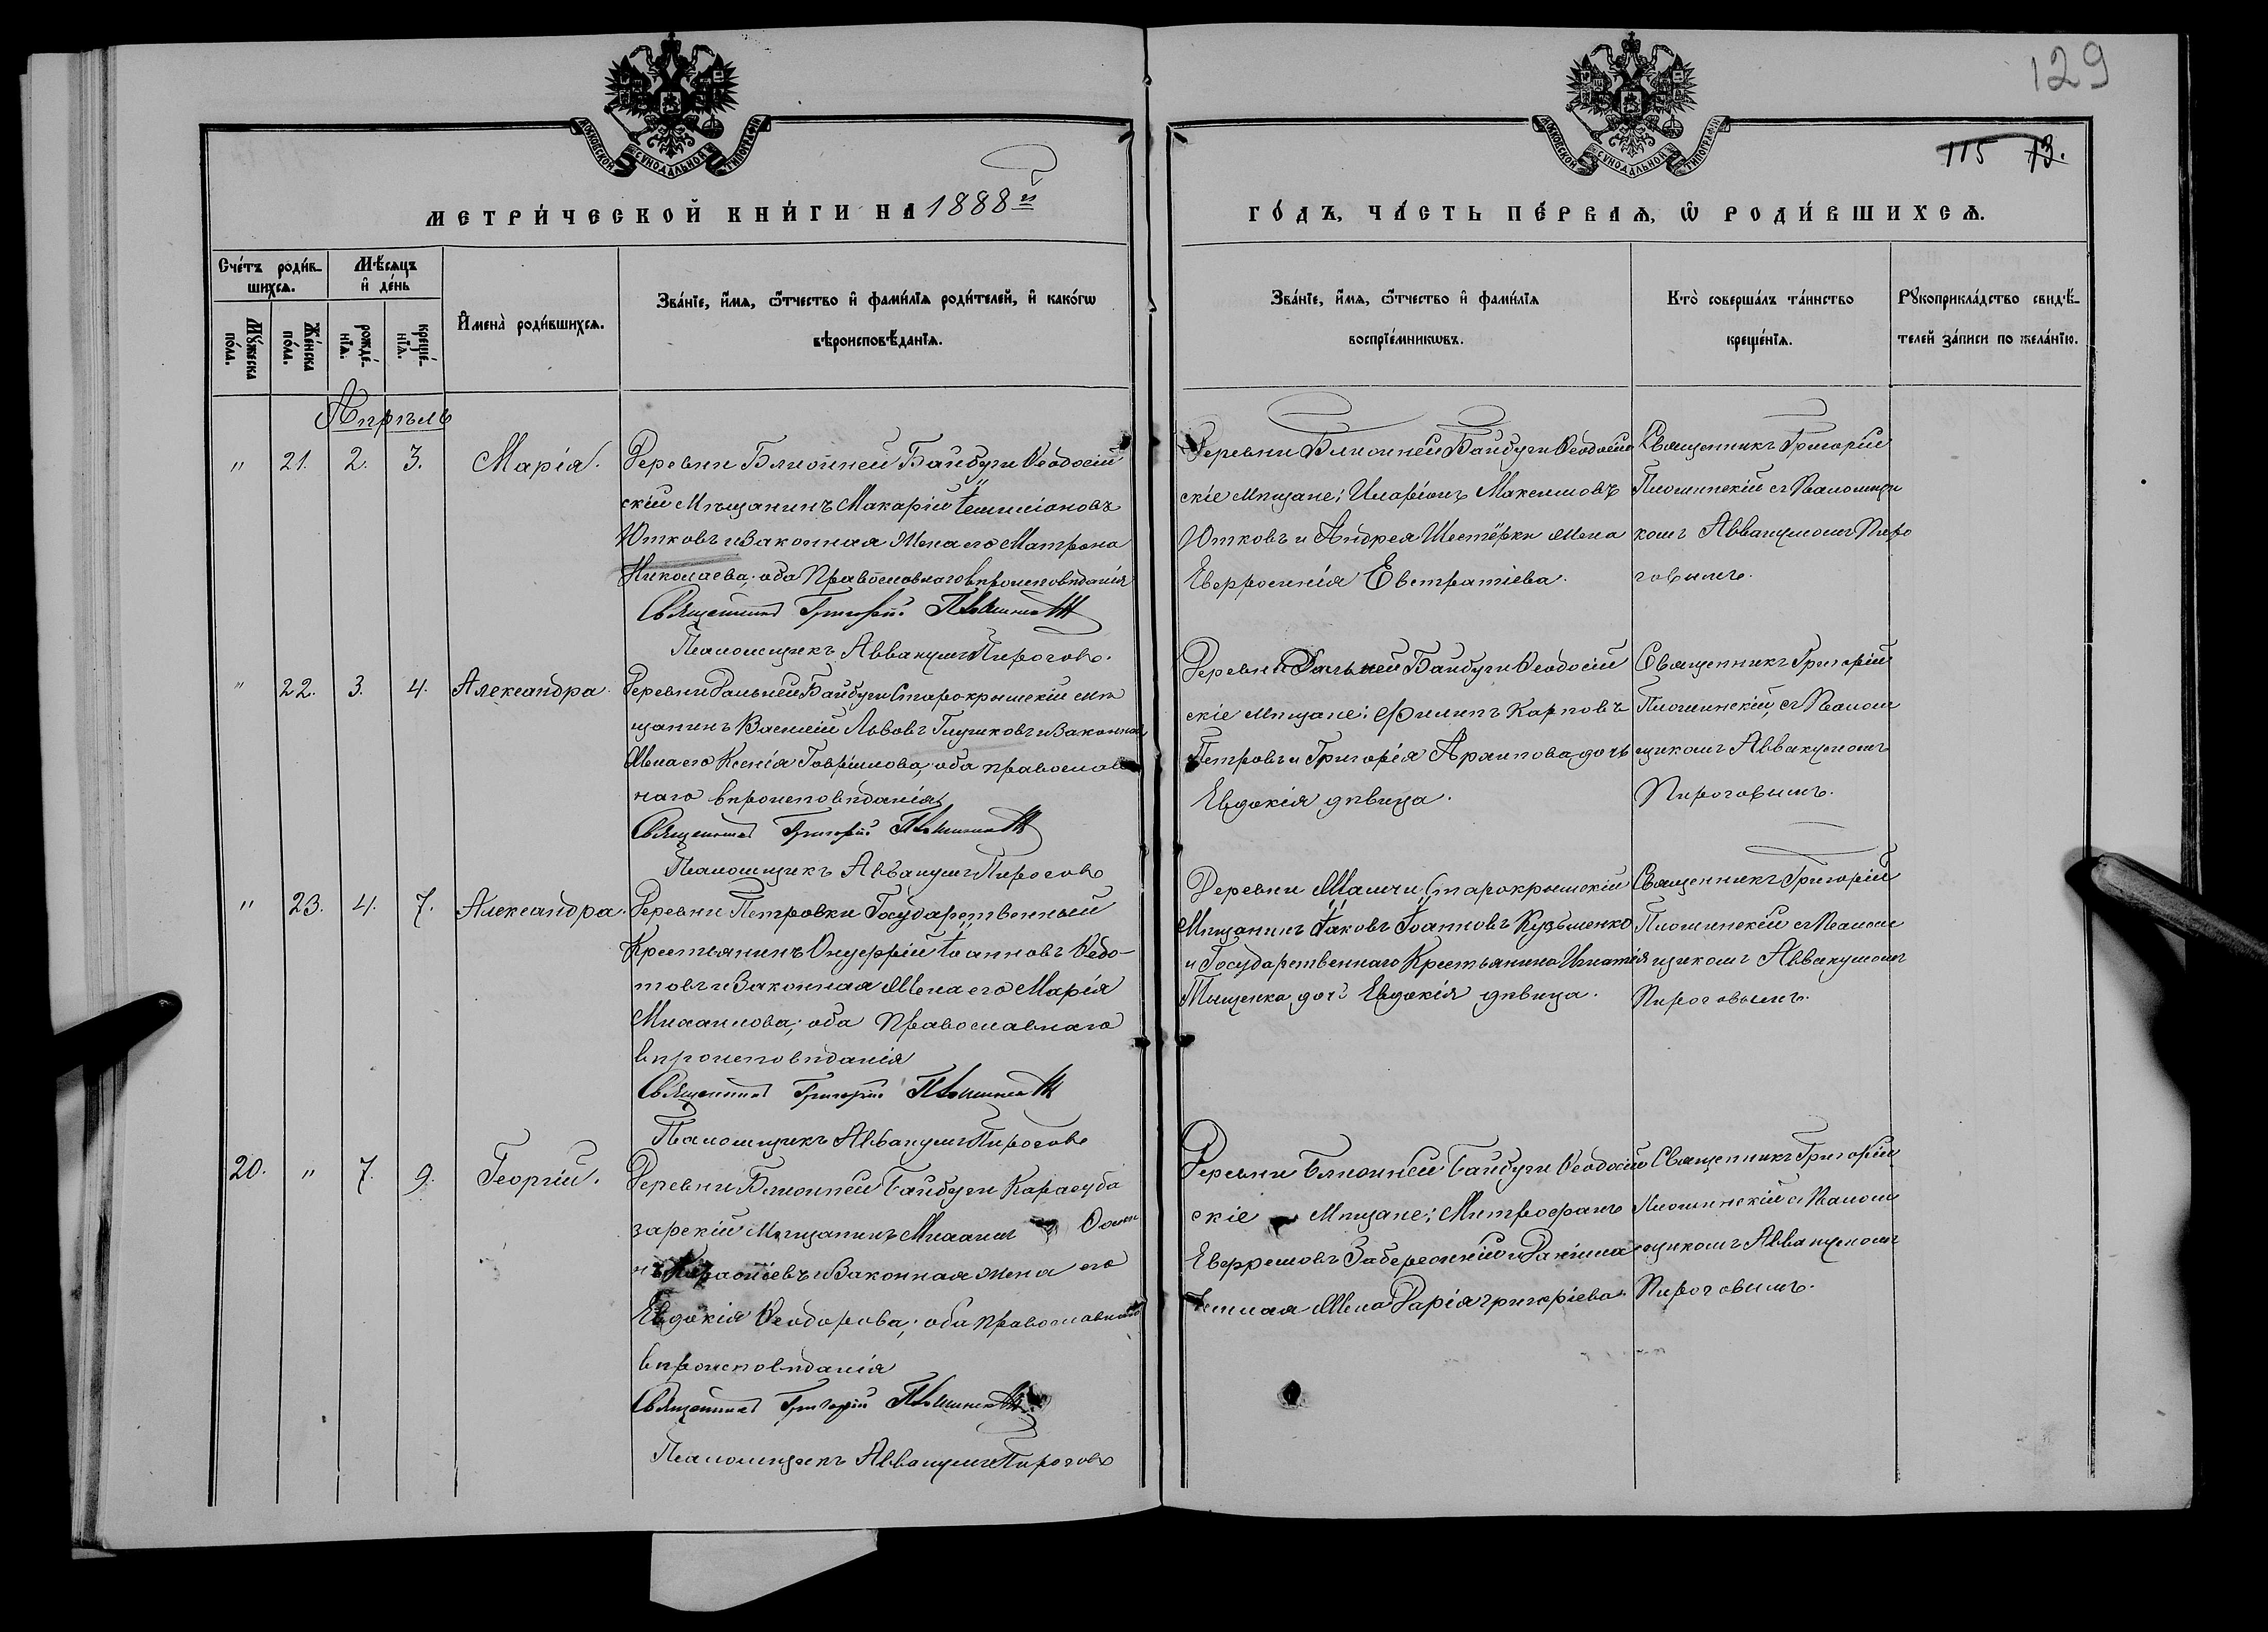 129
115 73.
МОСКОВСКОЙ СѴНОДАЛЬНОЙ ТИПОГРАФІИ
МОСКОВСКОЙ СѴНОДАЛЬНОЙ ТИПОГРАФІИ
МЕТРИ́ЧЕСКОЙ КНИ́ГИ НА 1888й
ГО́ДЪ, ЧА́СТЬ ПЕ́РВАѦ, Ѡ РОДИ́ВШИХСѦ.
Сче́тъ роди́в-
шихсѧ.
Мѣ́сѧцъ
и де́нь
Мꙋ́жеска
по́ла.
Же́нска
по́ла.
рожде́-
нїѧ.
креще́-
нїѧ.
И҆мена̀ роди́вшихсѧ.
Зва́нїе, и҆́мѧ, ѻ҆́тчество и҆ фами́лїѧ роди́телей, и҆ како́гѡ
вѣроисповѣ́данїѧ.
Зва́нїе, и҆́мѧ, ѻ҆́тчество и҆ фами́лїѧ
воспрїе́мникѡвъ.
Кто̀ соверша́лъ та́инство
креще́нїѧ.
Рꙋкоприкла́дство свидѣ́-
телей за́писи по жела́нїю.
Апрѣль
" 21. 2. 3. Марія.
Деревни Ближней Байбуги Ѳеодосій
скій Мѣщанинъ Макарій
Ютковъ и Законная Жена его Матрона
Николаева; оба Православнаго вѣроисповѣданія
Священникъ Григорій
Псаломщикъ Аввакумъ Пироговъ.
Деревни Ближней Байбуги Ѳеодосій
скіе мѣщане; Иларіонъ Максимовъ
Ютковъ и Андрея Шестёрки жена
Евфросинія Евстратіева.
Священникъ Григорій
съ Псаломщи
комъ Аввакумомъ Пиро
говымъ.
" 22. 3. 4. Александра.
Деревни Дальней Байбуги Старокрымскій мѣ
щанинъ Василій Львовъ Глушковъ и Законная
Жена его Ксенія Гавріилова; оба православ
наго вѣроисповѣданія
Священникъ Григорій
Псаломщикъ Аввакумъ Пироговъ
Деревни Дальней Байбуги Ѳеодосій
скіе мѣщане: Филипъ Карповъ
Петровъ и Григорія Архипова дочь
Евдокія дѣвица.
Священникъ Григорій
съ Псалом
щикомъ Аввакумомъ
Пироговымъ.
" 23. 4. 7. Александра.
Деревни Петровки Государственный
Крестьянинъ Онуфрій Іоанновъ Ѳедо-
товъ и Законная Жена его Марія
Михаилова; оба Православнаго
вѣроисповѣданія
Священникъ Григорій
Псаломщикъ Аввакумъ Пироговъ
Деревни Старокрымскій
Мѣщанинъ Іаковъ Іоанновъ Кузьменко
и Государственнаго Крестьянина Игнатія
Тыщенка дочь Евдокія дѣвица.
Священникъ Григорій
съ Псалом
щикомъ Аввакумомъ
Пироговымъ.
20. " 7. 9. Георгій.
Деревни Ближней Байбуги Карасуба
зарскій Мѣщанинъ Михаилъ
и Законная жена его
Евдокія Ѳеодорова; оба православнаго
вѣроисповѣданія
Священникъ Григорій
Псаломщикъ Аввакумъ Пироговъ
Деревни Ближней Байбуги Ѳеодосій
скіе Мѣщане; Митрофанъ
жена Дарія Григоріева.
Священникъ Григорій
съ Псалом
щикомъ Аввакумомъ
Пироговымъ.